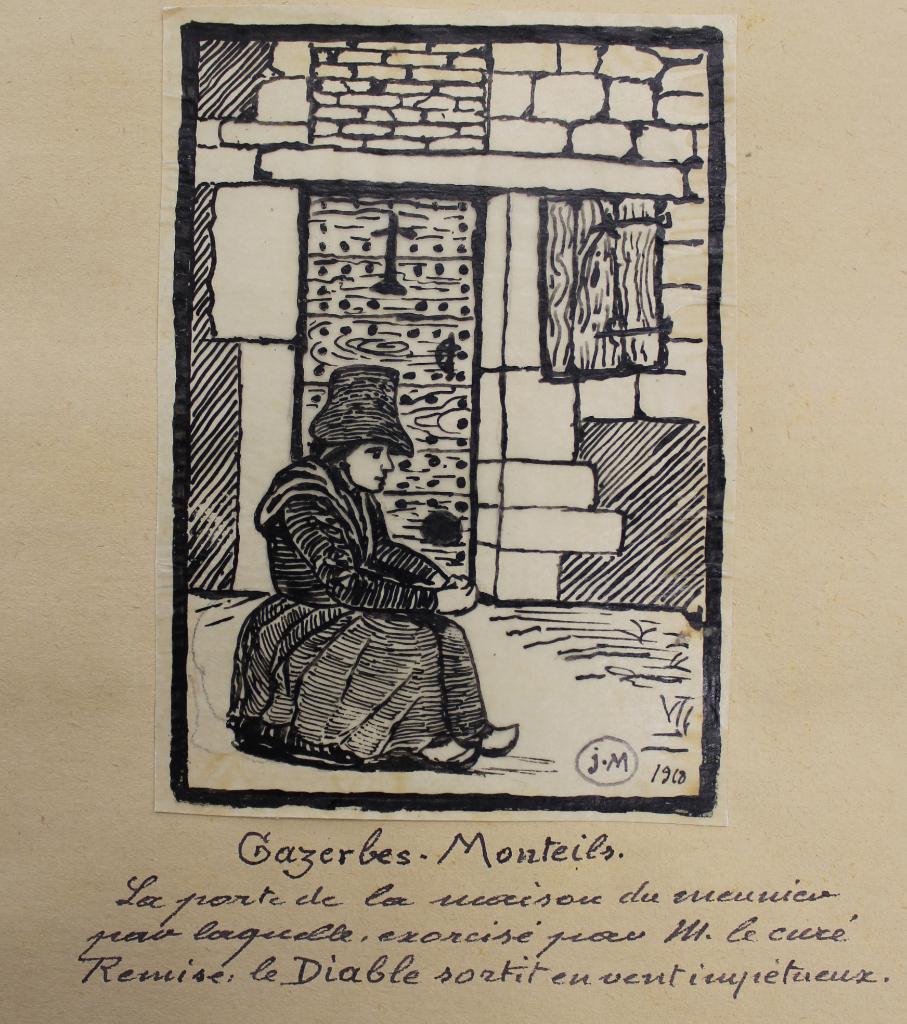 j.M
1910
Gazerbes. Monteils.
La porte de la maison du meunier
par laquelle, exorcisé par M. le curé
Remise, le Diable sortit en vent impétueux.